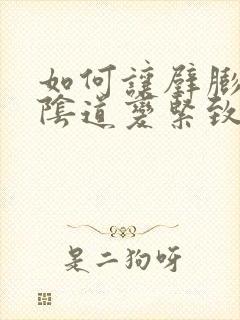 如何讓壁膨
陰道變緊致
是二狗呀